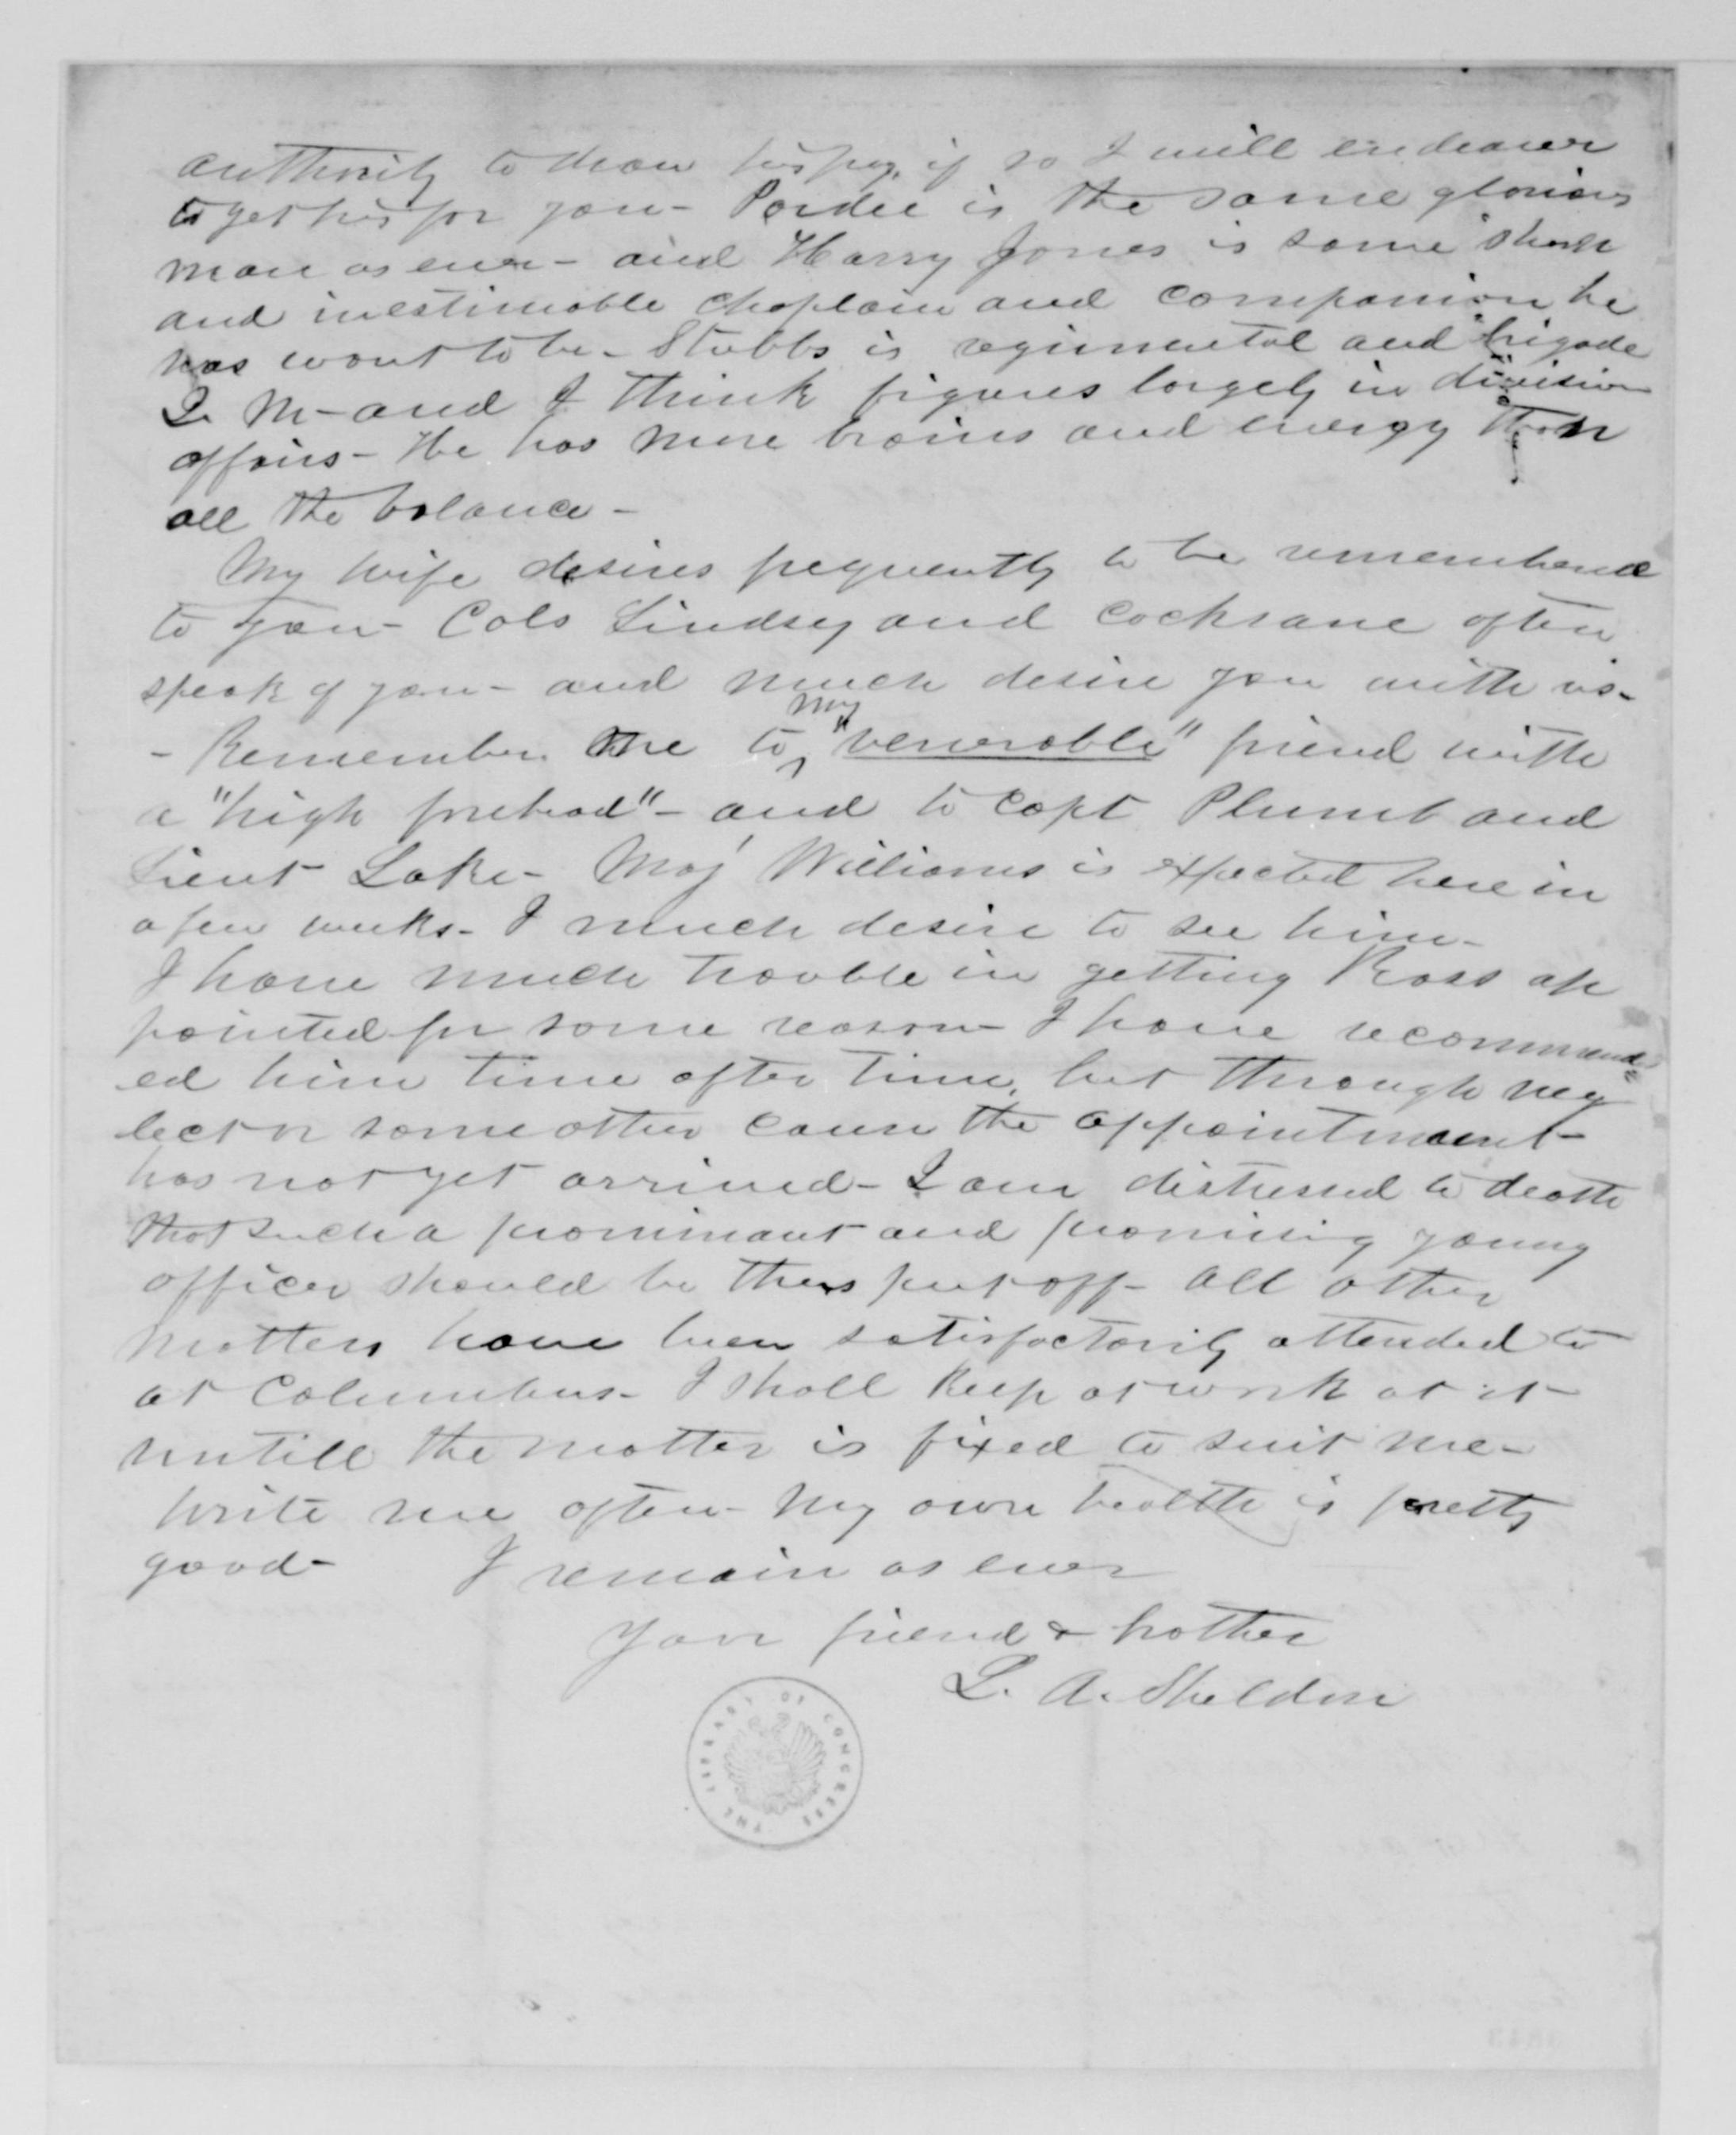 authority to draw his pay, if so I will endeavor
to get his for you - Pardee is the same glorious
man as ever - and Harry Jones is same
and inestimable chaplain and companion he
was wont to be - Stubbs is regimental and brigade
Q. M - and I think figures largely in division
affairs - He has more brains and energy than
all the balance -
My wife desires frequently to be remembered
to you - Cols Lindsey and Cochrane often
speak of you - and much desire you with us -
- Remember me to my "venerable" friend with
a "high forehead" - and to Capt Plumb and
Lieut Lake - Maj Williams is expected here in
a few weeks - I much desire to see him -
I have much trouble in getting Ross ap
pointed for some reason - I have recommend=
ed him time after time, but through neg
lect or some other cause the appointment
has not yet arrived - I am distressed to death
that such a prominant and promising young
officer should be thus put off - All other
matters have been satisfactorily attended to
at Columbus - I shall keep at work at it
untill the matter is fixed to suit me -
Write me often - My own health is pretty
good - I remain as ever
Your friend & brother
L. A. Sheldon
THE LIBRARY OF CONGRESS